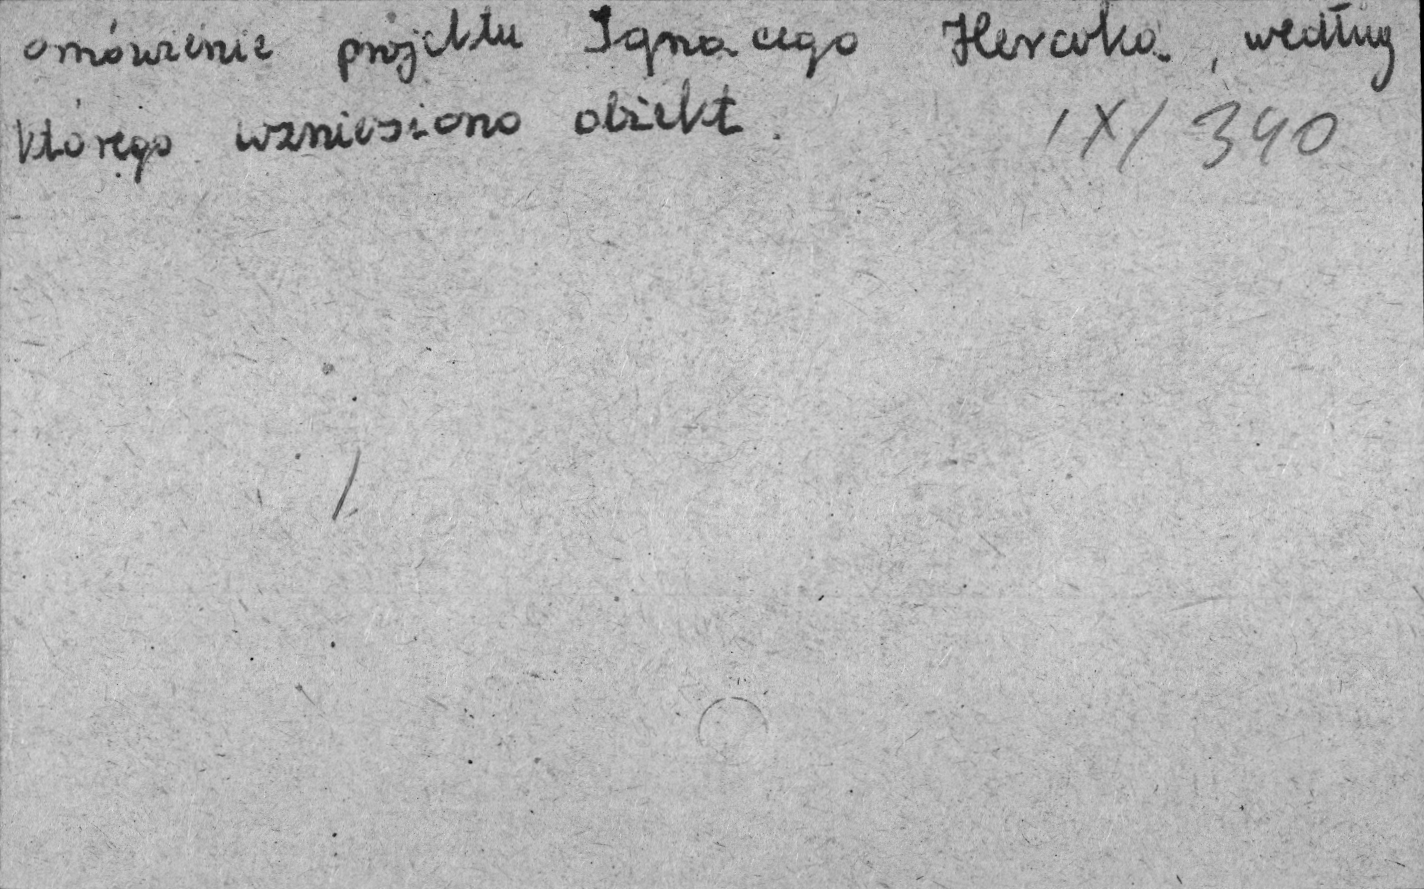 omówienie projektu Ignacego Hercoka, według
którego wzniesiono obiekt. IX/390